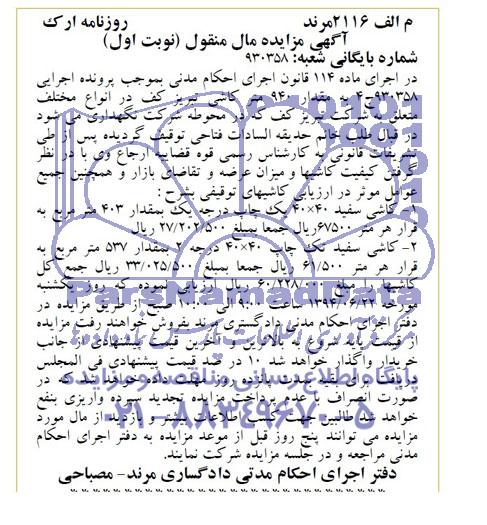 م الف ۲۱۱۶مرند روزنامه ارک
آگهی مزایده مال منقول (نوبت اول)
شماره بایگانی شعبه: ۹۳۰۳۵۸
در اجرای ماده ۱۱۴ قانون اجرای احکام مدنی بموجب پرونده اجرایی
۹۳۰۳۵۸-۴ به مقدار ۹۴۰ متر کاشی تبریز کف در انواع مختلف
متعلق به شرکت تبریز کف که در محوطه شرکت نگهداری می شود
در قبال طلب خانم حدیقه السادات فتاحی توقیف گردیده پس از طی
تشریفات قانونی و کارشناس رسمی قوه قضاییه ارجاع وی با در نظر
گرفتن کیفیت کاشیها و میزان عرضه و تقاضای بازار و همچنین جمیع
عوامل موثر در ارزیابی کاشیهای توقیفی بشرح :
۱- کاشی سفید ۴۰×۴۰ یک چاپ درجه یک بمقدار ۴۰۳ متر مربع به
قرار هر متر ۶۷۵۰۰ریال جمعا بمبلغ ۲۷/۲۰۲/۵۰۰ ریال
۲- کاشی سفید تک چاپ ۴۰×۴۰ درجه ۲ بمقدار ۵۳۷ متر مربع به
قرار هر متر ۶۱/۵۰۰ ریال جمعا بمبلغ ۳۳/۰۲۵/۵۰۰ ریال جمع کل
کاشیها را مبلغ ۶۰/۲۲۸/ ریال ارزیابی نموده که روز یکشنبه
مورخه ۱۳۹۴/۰۶/۲۲ ساعت الی صبح از طریق مزایده در
دفتر اجرای احکام مدنی دادگستری مرند بفروش خواهند رفت مزایده
از قیمت پایه شروع و بالاترین و آخرین قیمت پیشنهادی از جانب
خریدار واگذار خواهد شد ۱۰ در صد قیمت پیشنهادی فی المجلس
دریافت و برای بقیه مدت روز مهلت داده خواهد شد که در
صورت انصراف یا عدم پرداخت مزایده تجدید سپرده واریزی بنفع
خواهد شد طالبین جهت کسب اطلاعات بیشتر و بازدید از مال مورد
مزایده می توانند پنج روز قبل از موعد مزایده به دفتر اجرای احکام
مدنی مراجعه و در جلسه مزایده شرکت نمایند.
دفتر اجرای احکام مدنی دادگساری مرند- مصباحی
ParsNamadData
پایگاه اطلاع رسانی مناقصه و مزایده
۰۲۱-۸۸۳۴۹۶۷۰-۵